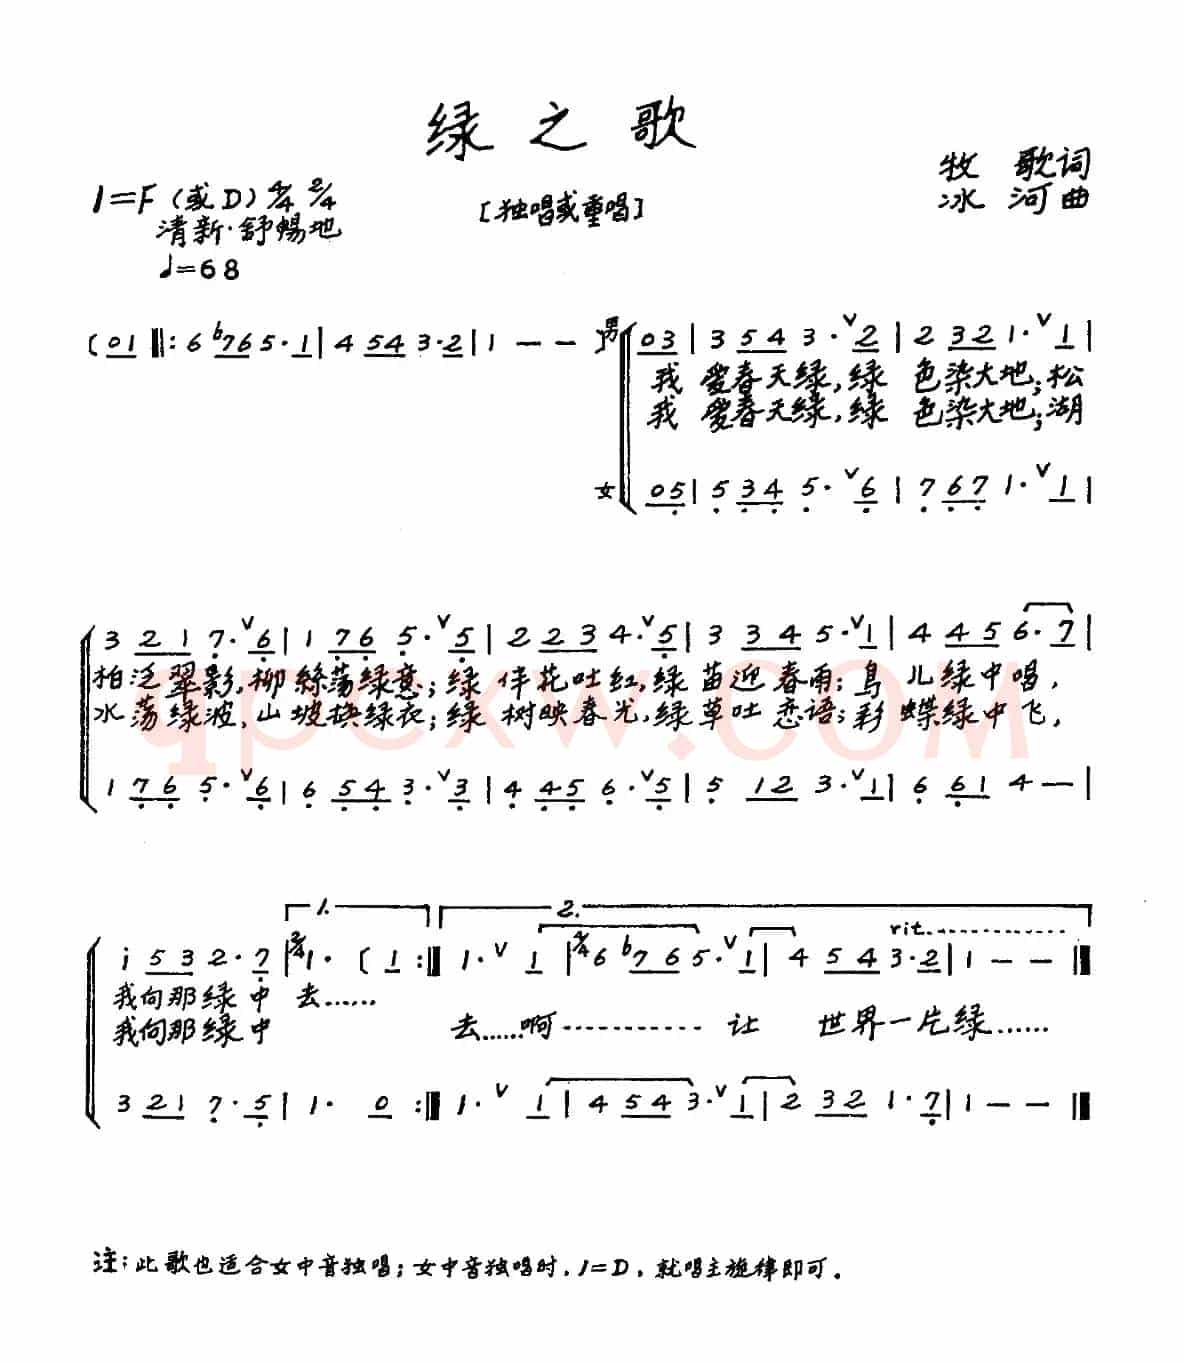 绿之歌
牧 歌词
冰 河曲
1=F (或D) 4/4 2/4
清新·舒畅地
♩=68
[独唱或重唱]
(01 ‖: 6 ♭765·1 | 4 543·2 | 1 — — )
男 03 | 3 543·ⱽ2 | 2 321·ⱽ1 |
我 爱春天绿,绿 色染大地;松
我 爱春天绿,绿 色染大地;湖
女 05 | 5 345·ⱽ6 | 7 671·ⱽ1 |
3 217·ⱽ6 | 1 765·ⱽ5 | 2 234·ⱽ5 | 3 345·ⱽ1 | 4 456·7 |
柏泛翠影,柳絲荡绿意;绿 伴花吐红,绿苗迎春雨;鸟 儿绿中唱,
水荡绿波,山坡换绿衣;绿 树映春光,绿草吐恋语;彩 蝶绿中飞,
1 765·ⱽ6 | 6 543·ⱽ3 | 4 456·ⱽ5 | 5 123·ⱽ1 | 6 614 — |
1. 2.
rit.
i 532·7 | 2/4 1· (1 :‖ 1·ⱽ1 | 4/4 6 ♭765·ⱽ1 | 4 543·2 | 1 — — ‖
我向那绿中 去……
我向那绿中 去……啊 让 世界一片绿……
3 217·5 | 1· 0 :‖ 1·ⱽ1 | 4 543·ⱽ1 | 2 321·7 | 1 — — ‖
注:此歌也适合女中音独唱;女中音独唱时,1=D,就唱主旋律即可.
qpcxw.com